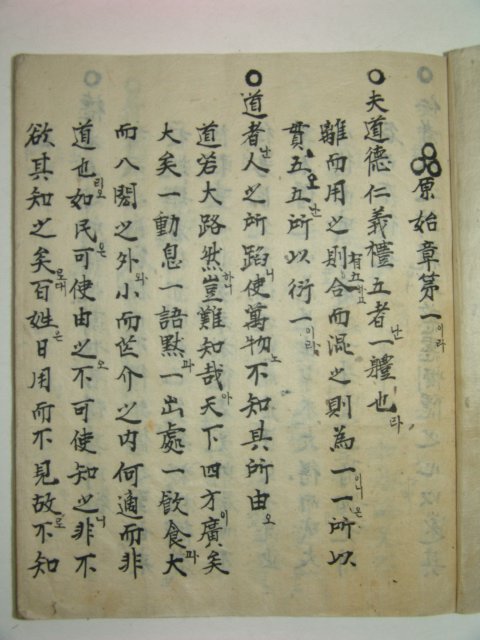 原始章第一이라
夫道德仁義禮五者난一體也라
離而用之則有五하고合而混之則為一이니一은所以
貫五오五난所以衍一이라
道者난人之所蹈니使萬物노不知其所由오
道若大路然하니豈難知哉아天下四方이廣矣
大矣一動息一語默과一出處一飮食과大
而八閤之外와小而芒介之內何適而非
道也리오如民은可使由之오不可使知之니非不
欲其知之矣로대百姓은日用而不見故로不知